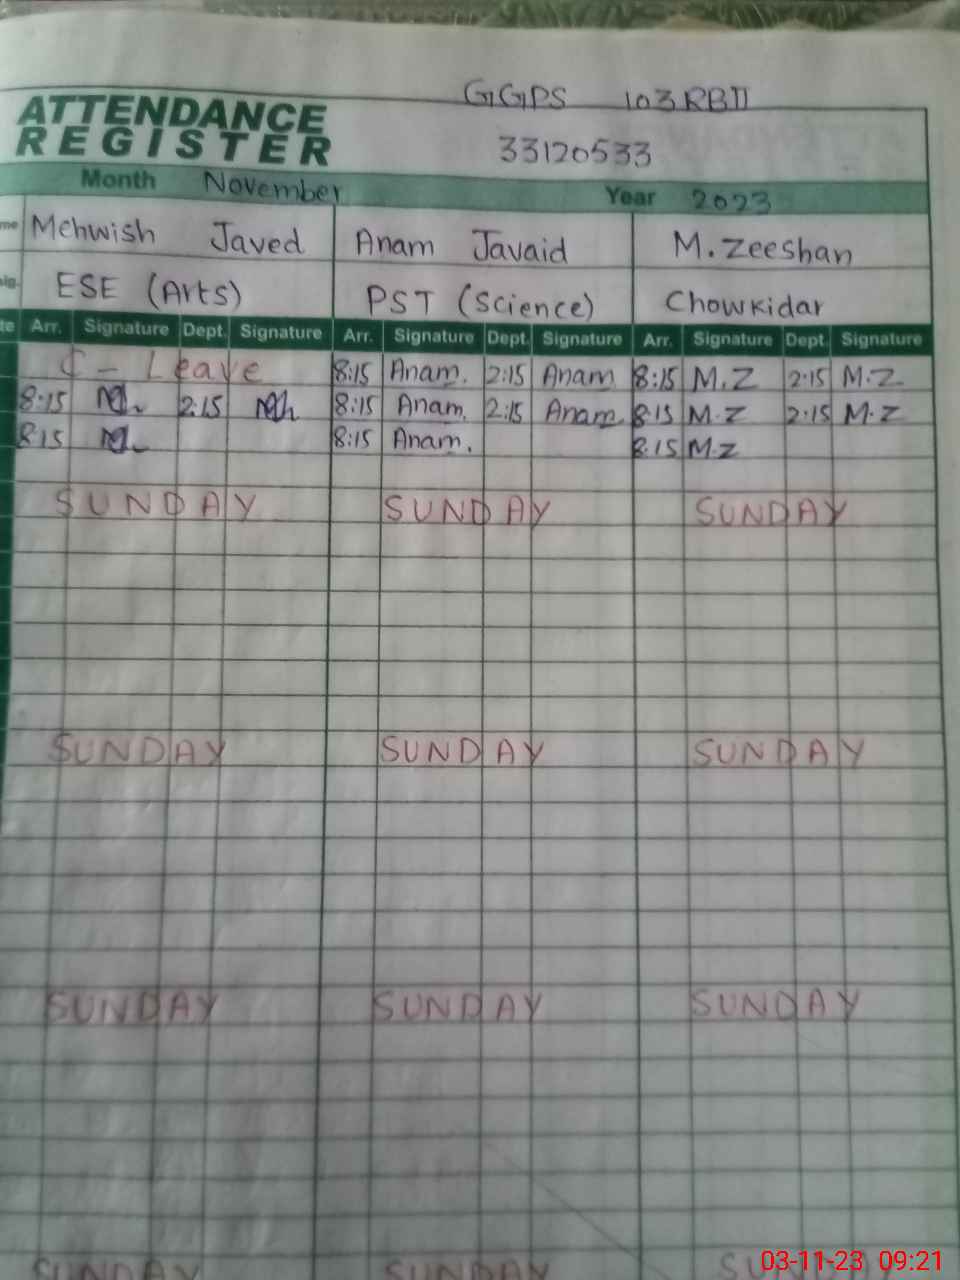 GGPS 103RBII
ATTENDANCE
REGISTER
33120533
Month November Year 2023
me Mehwish Javed Anam Javaid M.Zeeshan
ESE (Arts) PST (Science) Chowkidar
te Arr. Signature Dept. Signature Arr. Signature Dept. Signature Arr. Signature Dept. Signature
C - Leave 8:15 Anam. 2:15 Anam 8:15 M.Z 2:15 M.Z
8:15 2:15 8:15 Anam. 2:15 Anam. 8:15 M.Z 2:15 M.Z
8:15 8:15 Anam. 8:15 M.Z
SUNDAY SUNDAY SUNDAY
SUNDAY SUNDAY SUNDAY
SUNDAY SUNDAY SUNDAY
SUNDAY SUNDAY SU
03-11-23 09:21